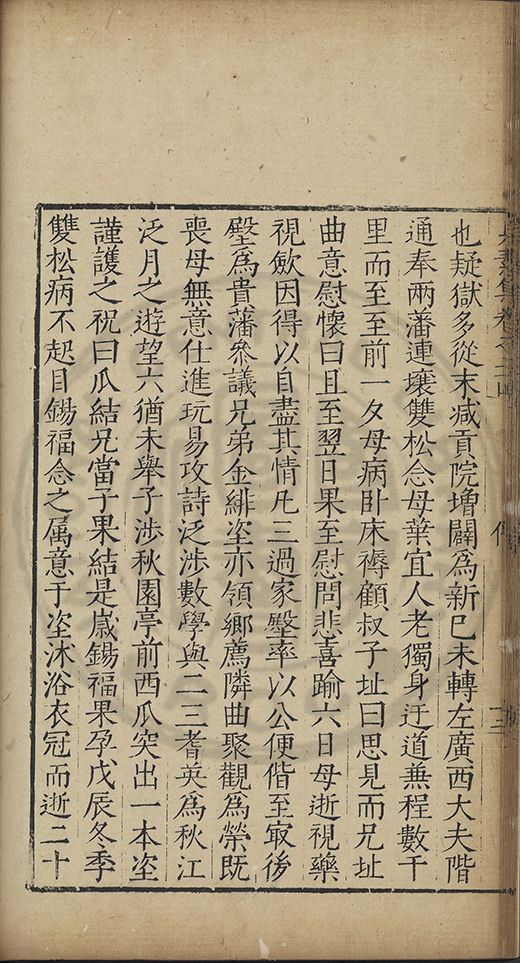 也疑獄多從末減貢院增闢爲新巳未轉左廣西大夫階
通奉兩藩連壤雙松念母葉宜人老獨身迂道兼程數千
里而至至前一夕母病卧床褥顧叔子址曰思見而兄址
曲意慰懷曰且至翌日果至慰問悲喜踰六日母逝視藥
視歛因得以自盡其情凡三過家壂率以公便偕至㝡後
壂爲貴藩叅議兄弟金緋坙亦領鄉薦隣曲聚觀爲榮既
喪母無意仕進玩易攻詩泛涉數學與二三耆英爲秋江
泛月之遊望六猶未舉子涉秋園亭前西瓜突出一本坙
謹護之祝曰瓜結兄當子果結是歲錫福果孕戊辰冬季
雙松病不起目錫福念之属意于坙沐浴衣冠而逝二十